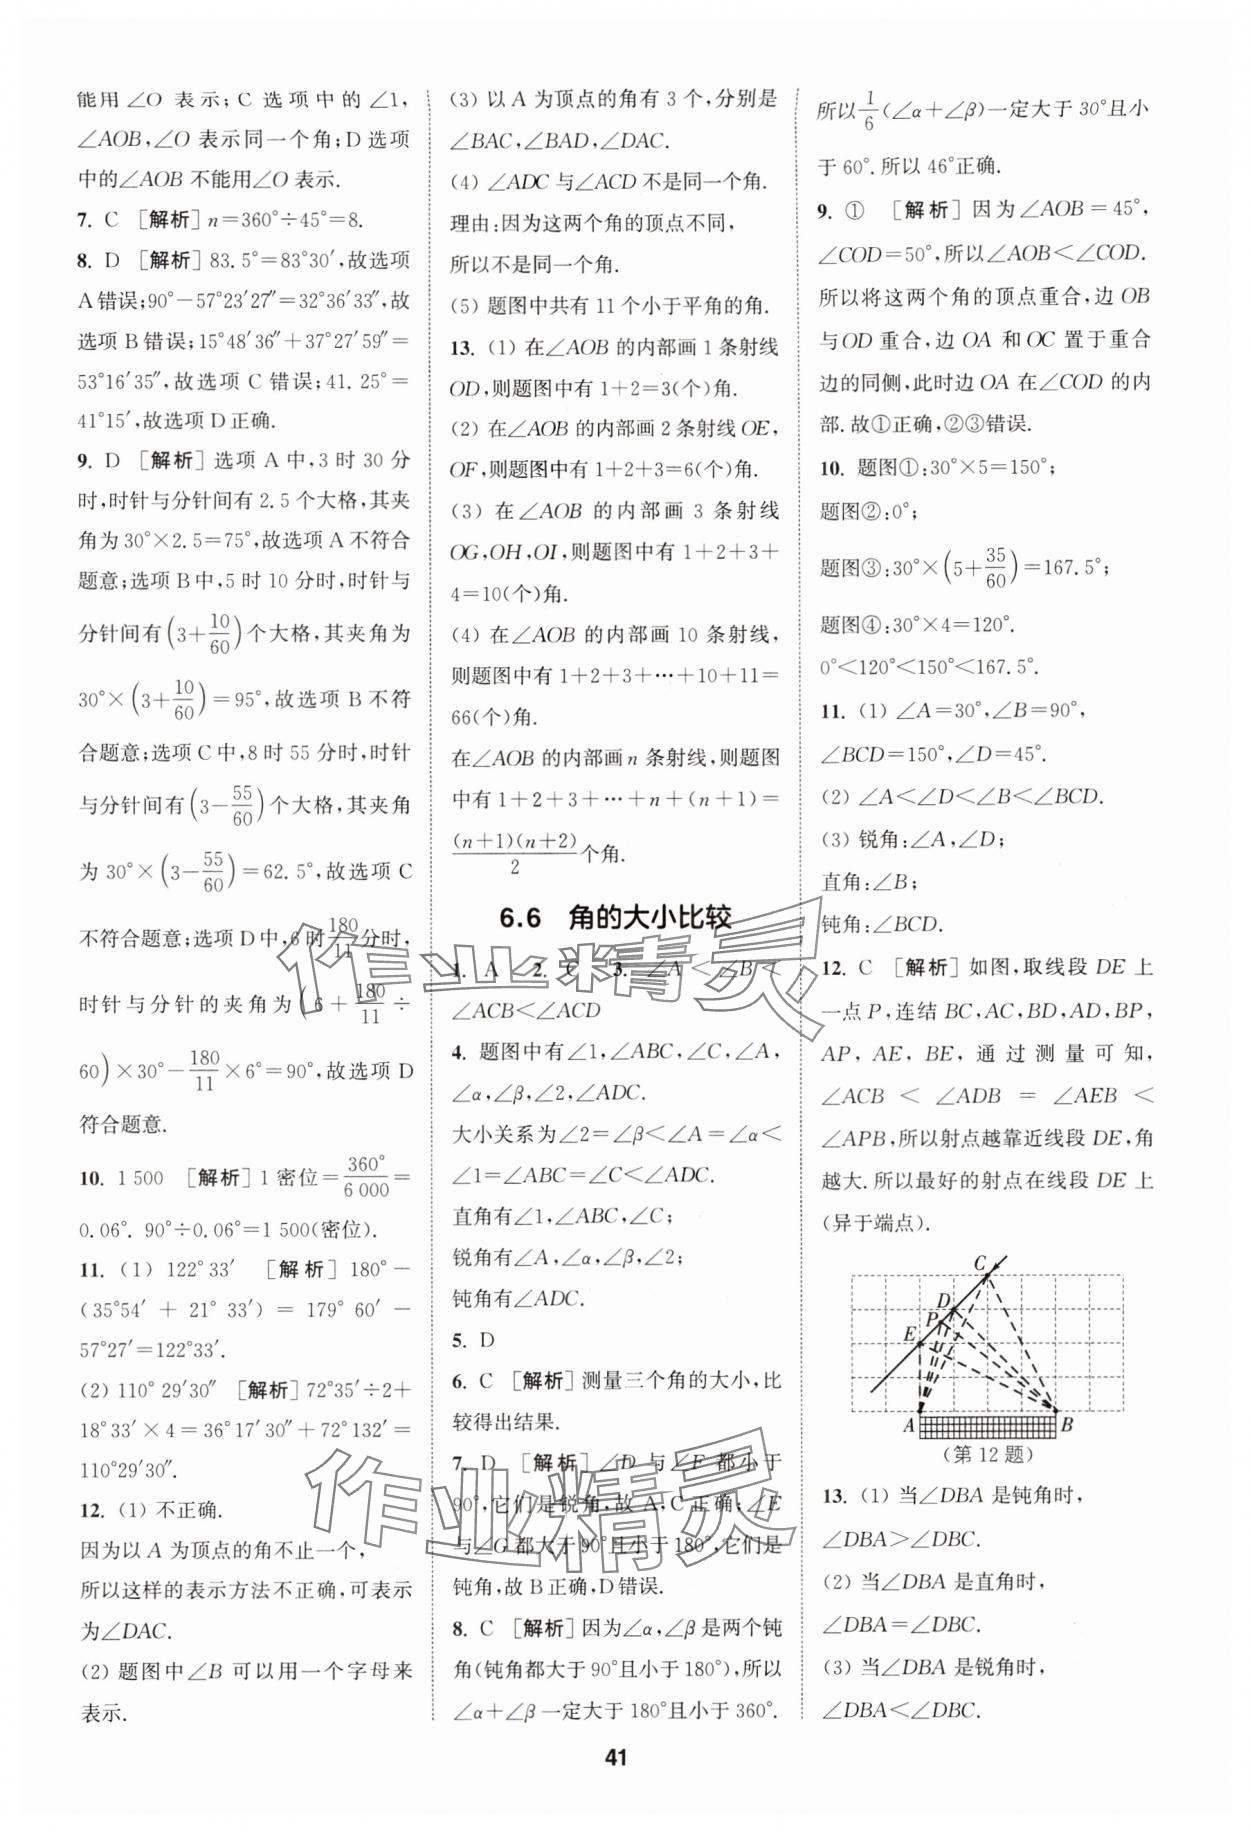 能用∠O 表示;C 选项中的∠1,
∠AOB,∠O 表示同一个角;D 选项
中的∠AOB 不能用∠O 表示.
7. C [解析]n=360°÷45°=8.
8. D [解析]83.5°=83°30′,故选项
A 错误;90°-57°23′27″=32°36′33″,故
选项 B 错误;15°48′36″+37°27′59″=
53°16′35″,故选项 C 错误;41.25°=
41°15′,故选项 D 正确.
9. D [解析]选项 A 中,3 时 30 分
时,时针与分针间有 2.5 个大格,其夹
角为 30°×2.5=75°,故选项 A 不符合
题意;选项 B 中,5 时 10 分时,时针与
分针间有(3+10/60)个大格,其夹角为
30°×(3+10/60)=95°,故选项 B 不符
合题意;选项 C 中,8 时 55 分时,时针
与分针间有(3-55/60)个大格,其夹角
为 30°×(3-55/60)=62.5°,故选项 C
不符合题意;选项 D 中,6 时 180/11 分时,
时针与分针的夹角为(6+180/11÷
60)×30°-180/11×6°=90°,故选项 D
符合题意.
10. 1 500 [解析]1 密位=360°/6 000=
0.06°. 90°÷0.06°=1 500(密位).
11. (1) 122°33′ [解析]180°-
(35°54′+21°33′)=179°60′-
57°27′=122°33′.
(2) 110°29′30″ [解析]72°35′÷2+
18°33′×4=36°17′30″+72°132′=
110°29′30″.
12. (1) 不正确.
因为以 A 为顶点的角不止一个,
所以这样的表示方法不正确,可表示
为∠DAC.
(2) 题图中∠B 可以用一个字母来
表示.
(3) 以 A 为顶点的角有 3 个,分别是
∠BAC,∠BAD,∠DAC.
(4) ∠ADC 与∠ACD 不是同一个角.
理由:因为这两个角的顶点不同,
所以不是同一个角.
(5) 题图中共有 11 个小于平角的角.
13. (1) 在∠AOB 的内部画 1 条射线
OD,则题图中有 1+2=3(个)角.
(2) 在∠AOB 的内部画 2 条射线 OE,
OF,则题图中有 1+2+3=6(个)角.
(3) 在∠AOB 的内部画 3 条射线
OG,OH,OI,则题图中有 1+2+3+
4=10(个)角.
(4) 在∠AOB 的内部画 10 条射线,
则题图中有 1+2+3+…+10+11=
66(个)角.
在∠AOB 的内部画 n 条射线,则题图
中有 1+2+3+…+n+(n+1)=
(n+1)(n+2)/2 个角.
6.6 角的大小比较
1. A 2. C 3. ∠A<∠B<
∠ACB<∠ACD
4. 题图中有∠1,∠ABC,∠C,∠A,
∠α,∠β,∠2,∠ADC.
大小关系为∠2=∠β<∠A=∠α<
∠1=∠ABC=∠C<∠ADC.
直角有∠1,∠ABC,∠C;
锐角有∠A,∠α,∠β,∠2;
钝角有∠ADC.
5. D
6. C [解析]测量三个角的大小,比
较得出结果.
7. D [解析]∠D 与∠F 都小于
90°,它们是锐角,故 A,C 正确;∠E
与∠G 都大于 90°且小于 180°,它们是
钝角,故 B 正确,D 错误.
8. C [解析]因为∠α,∠β 是两个钝
角(钝角都大于 90°且小于 180°),所以
∠α+∠β 一定大于 180°且小于 360°.
所以1/6(∠α+∠β)一定大于 30°且小
于 60°.所以 46°正确.
9. ① [解析]因为∠AOB=45°,
∠COD=50°,所以∠AOB<∠COD.
所以将这两个角的顶点重合,边 OB
与 OD 重合,边 OA 和 OC 置于重合
边的同侧,此时边 OA 在∠COD 的内
部.故①正确,②③错误.
10. 题图①:30°×5=150°;
题图②:0°;
题图③:30°×(5+35/60)=167.5°;
题图④:30°×4=120°.
0°<120°<150°<167.5°.
11. (1) ∠A=30°,∠B=90°,
∠BCD=150°,∠D=45°.
(2) ∠A<∠D<∠B<∠BCD.
(3) 锐角:∠A,∠D;
直角:∠B;
钝角:∠BCD.
12. C [解析]如图,取线段 DE 上
一点 P,连结 BC,AC,BD,AD,BP,
AP,AE,BE,通过测量可知,
∠ACB<∠ADB=∠AEB<
∠APB,所以射点越靠近线段 DE,角
越大.所以最好的射点在线段 DE 上
(异于端点).
C
D
P
E
A
B
(第 12 题)
13. (1) 当∠DBA 是钝角时,
∠DBA>∠DBC.
(2) 当∠DBA 是直角时,
∠DBA=∠DBC.
(3) 当∠DBA 是锐角时,
∠DBA<∠DBC.
41
作业精灵
作业精灵